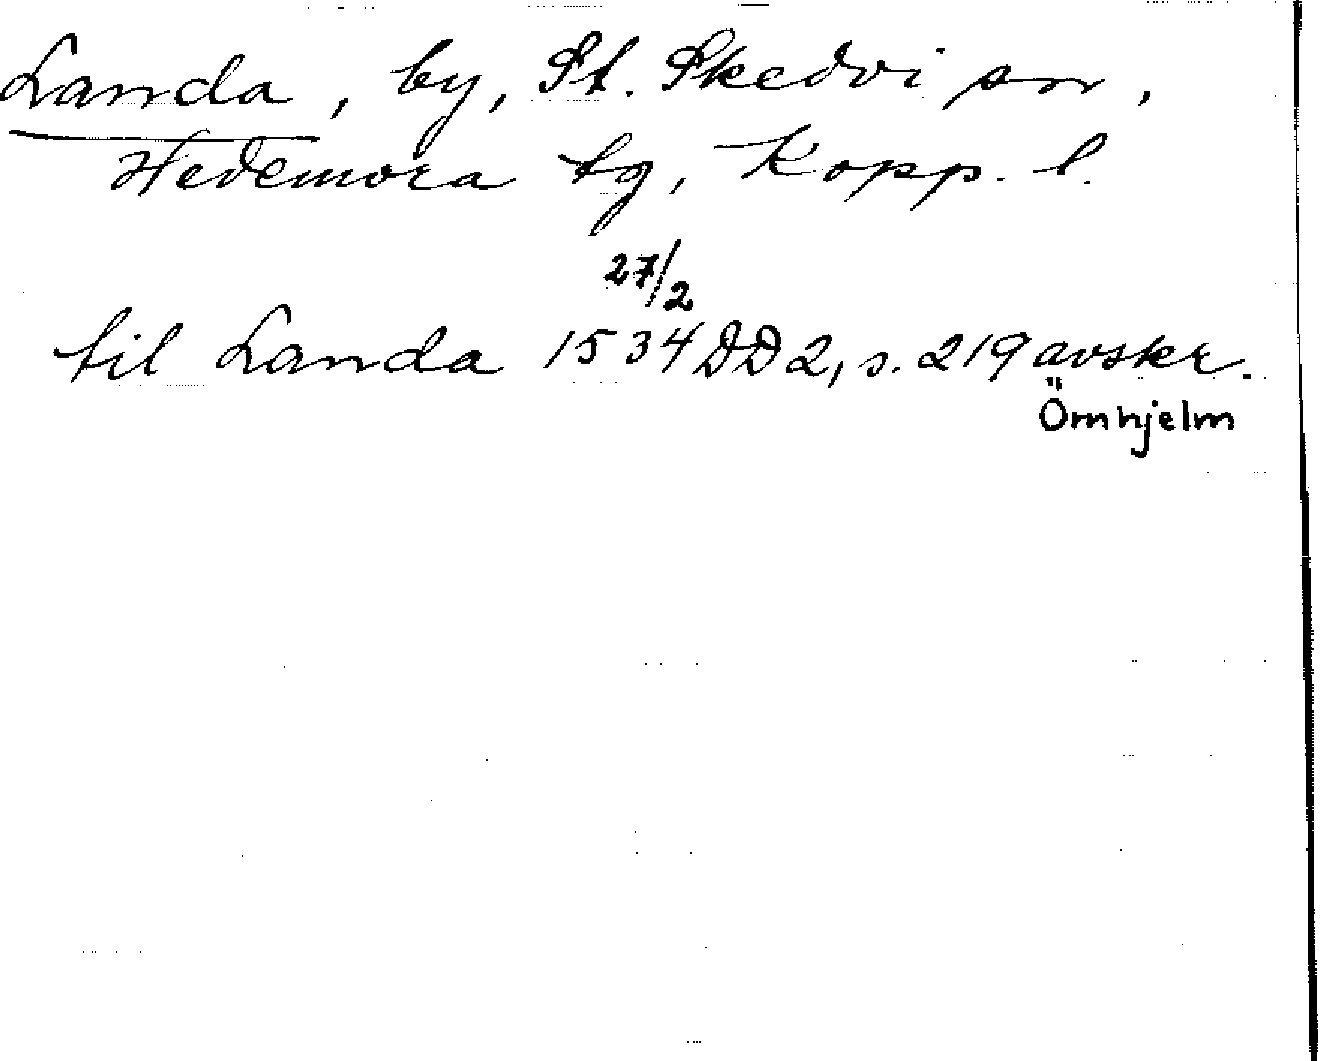 Landa, by, St. Skedvi sn,
Hedemora tg, Kopp. l.
27/2
til Landa 1534 DD 2, s. 219 avskr.
Örnhjelm